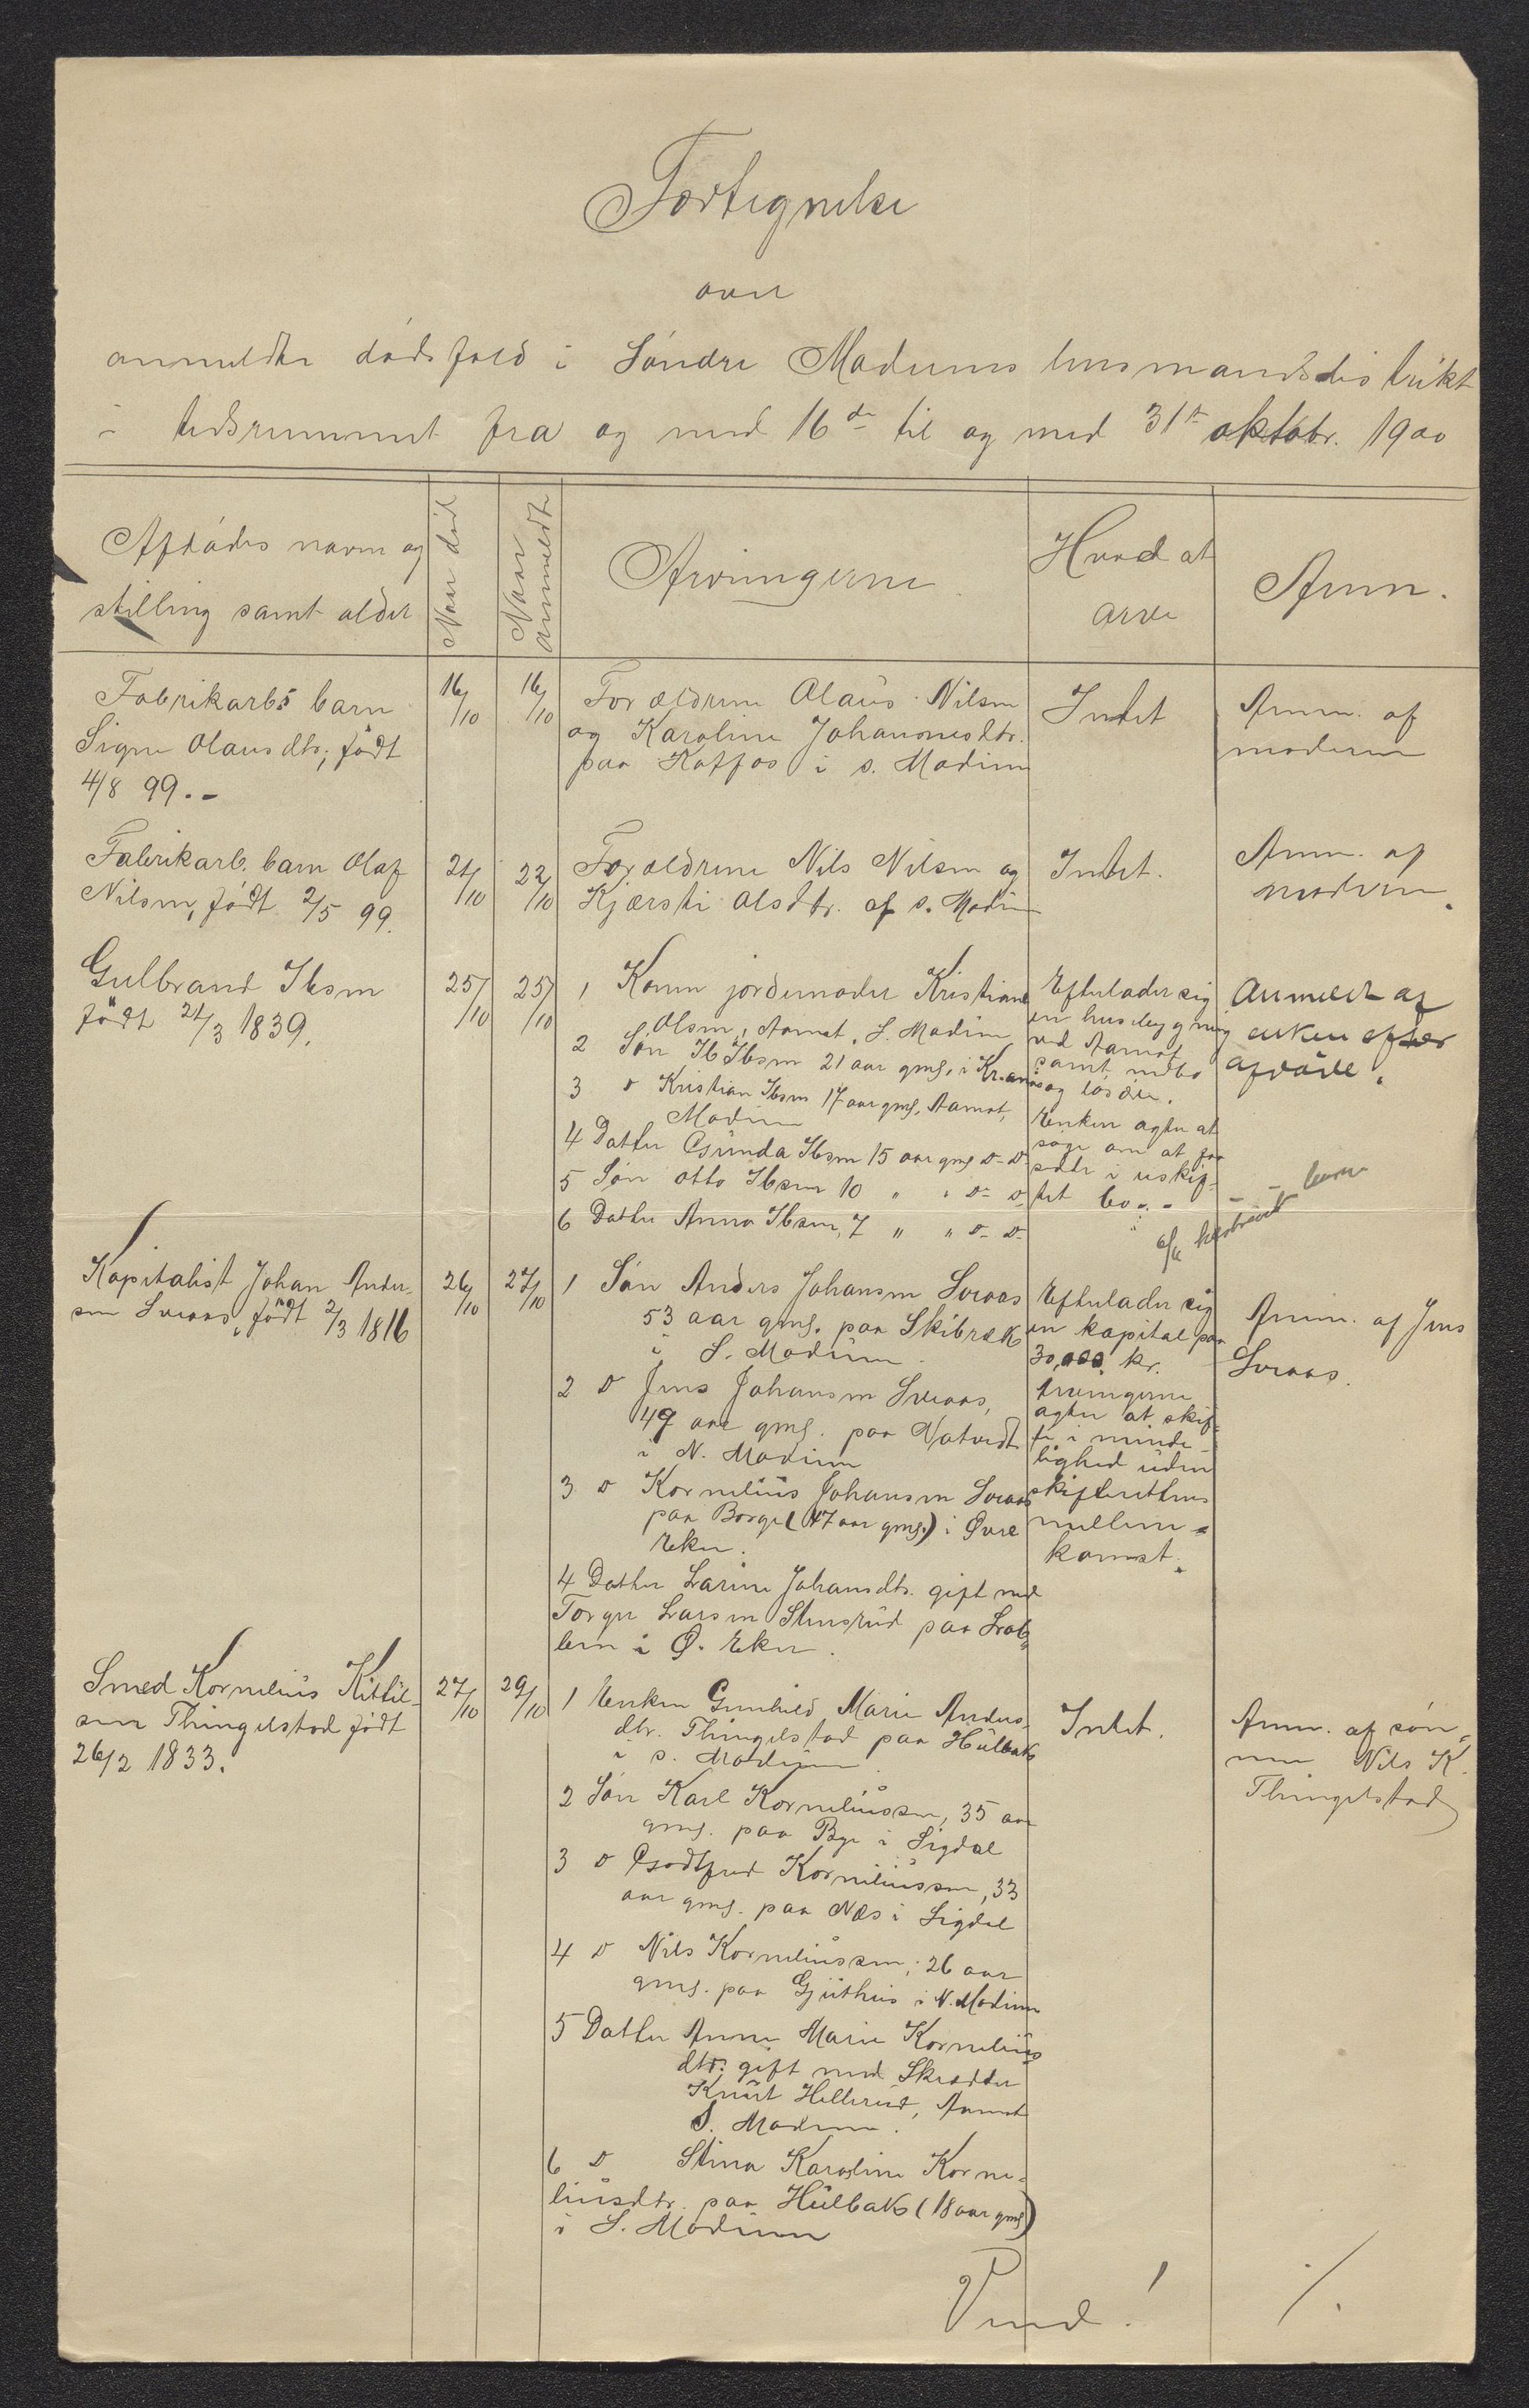 Fortegnelse
over
anmeldte dødsfald i Søndre Modums lensmandsdistrikt
i tidsrummet fra og med 16de til og med 31te oktobr. 1900
Afdødes navn og
stilling samt alder
Naar død
Naar
anmeldt
Arvingerne
Hvad at
arve
Anm.
Fabrikarbs barn
Signe Olausdtr, født
4/8 99.-
16/10
16/10
Forældrene Olaus Nilsen
og Karoline Johannesdtr.
paa Kaffos i s. Modum
Intet
Anm. af
moderen
Fabrikarb. barn Olaf
Nilsen, født 2/5 99.
21/10
22/10
Forældrene Nils Nilsen og
Kjærsti Olsdtr. af s. Modum
Intet.
Anm. af
moderen.
Gulbrand Ibsen
født 21/3 1839.
25/10
25/10
1 Konen jordemoder Kristiane
Olsen, Aamot, S. Modum
2 Søn Ib Ibsen 21 aar gml. i Kr.ania
3 D Kristian Ibsen 17 aar gml. Aamot,
Modum
4 Datter Gunda Ibsen 15 aar gml D- D-
5 Søn Otto Ibsen 10 " " D- D-
6 Datter Anna Ibsen, 7 " " D- D-
Efterlader sig
en husbygning
ved Aamot
samt indbo
og løsøre.
Enken agter at
søge om at faa
sidde i uskif-
tet bo.-
Anmeldt af
enken efter
afdøde.
Kapitalist Johan Ander-
sen Sveaas, født 2/3 1816
26/10
27/10
1 Søn Anders Johansen Sveaas
53 aar gml. paa Skibræk
i S. Modum.
2 D Jens Johansen Sveaas,
49 aar gml. paa Vatvedt
i N. Modum
3 D Kornelius Johansen Sveaas
paa Borge (47 aar gml.) i Øvre
Eker.
4 Datter Larine Johansdtr. gift med
Torger Larsen Stensrud paa
i Ø. Eker.
Efterlader sig
en kapital paa
30,000 kr.
Arvingerne
agter at skif-
te i minde-
lighed uden
skifterettens
mellem-
komst.
Anm. af Jens
Sveaas.
Smed Kornelius Kittil-
sen Thingelstad født
26/2 1833.
27/10
29/10
1 Enken Gunhild Marie Anders-
dtr. Thingelstad paa Hulbak
i s. Modum.
2 Søn Karl Korneliussen, 35 aar
gml. paa Bye i Sigdal
3 D Godtfred Korneliussen, 33
aar gml. paa Næs i Sigdal
4 D Nils Korneliussen, 26 aar
gml. paa Gjuthus i N. Modum
5 Datter Anne Marie Kornelius
dtr. gift med Skrædder
Knut Hellerud, Aamot
S. Modum.
6 D Stina Karoline Korne-
liusdtr. paa Hulbak (18 aar gml)
i S. Modum
Intet.
Anm. af søn-
nen Nils K.
Thingelstad
Vend!